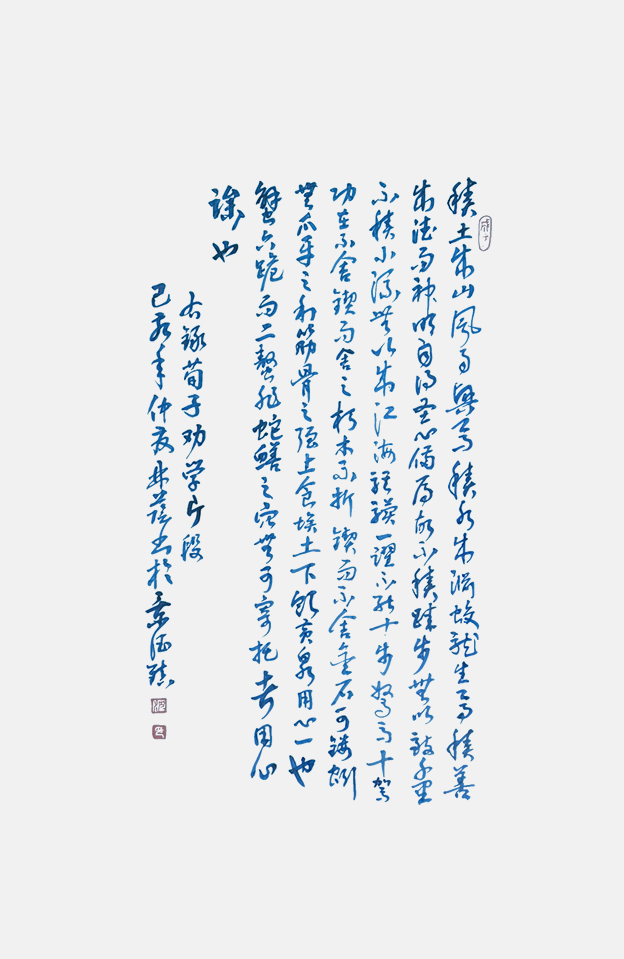 積土成山風雨興焉積水成淵蛟龍生焉積善
成德而神明自得圣心備焉故不積跬步無以致千里
不積小流無以成江海騏驥一躍不能十步駑馬十駕
功在不舍鍥而舍之朽木不折鍥而不舍金石可鏤蚓
無爪牙之利筋骨之强上食埃土下飲黃泉用心一也
蟹六跪而二螯非蛇鱔之穴無可寄托者用心
躁也
右錄荀子劝学片段
己亥年仲夏书於景德鎮